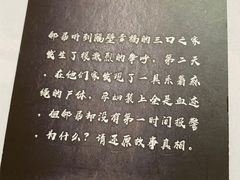 邻居听到隔壁李梅的三口之家
发生了很激烈的争吵，第二天
，在他们家发现了一具吊着麻
绳的尸体，房间装上全是血迹
，但邻居却没有第一时间报警
，为什么？请还原故事真相。